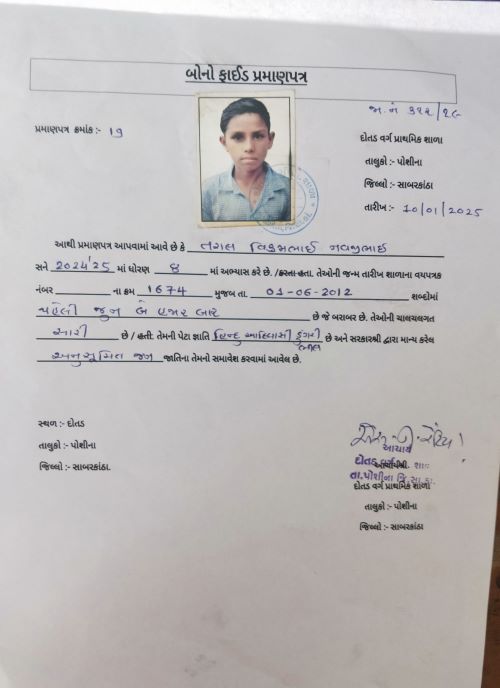 બોનો ફાઈડ પ્રમાણપત્ર
જા.નં ૩૨૨/૨૯
પ્રમાણપત્ર ક્રમાંક :- 19
દોતડ વર્ગ પ્રાથમિક શાળા
તાલુકો :- પોશીના
જિલ્લો :- સાબરકાંઠા
તારીખ :- 10/01/2025
આથી પ્રમાણપત્ર આપવામાં આવે છે કે તરાલ વિક્રમભાઈ નવજીભાઈ
સને 2024'25 માં ધોરણ ૪ માં અભ્યાસ કરે છે. /કરતા હતા. તેઓની જન્મ તારીખ શાળાના વયપત્રક
નંબર ના ક્રમ 1674 મુજબ તા. 01-06-2012 શબ્દોમાં
પહેલી જુન બે હજાર બાર છે જે બરાબર છે. તેઓની ચાલચલગત
સારી છે / હતી. તેમની પેટા જ્ઞાતિ હિન્દુ આદિવાસી ડુંગરી ભીલ છે અને સરકારશ્રી દ્વારા માન્ય કરેલ
અનુસૂચિત જન જાતિના તેમનો સમાવેશ કરવામાં આવેલ છે.
સ્થળ :- દોતડ
તાલુકો :- પોશીના
જિલ્લો :- સાબરકાંઠા.
આચાર્ય
દોતડ વર્ગ શાળા
આચાર્યશ્રી.
તા.પોશીના જિ.સા.કાં.
દોતડ વર્ગ પ્રાથમિક શાળા
તાલુકો :- પોશીના
જિલ્લો :- સાબરકાંઠા